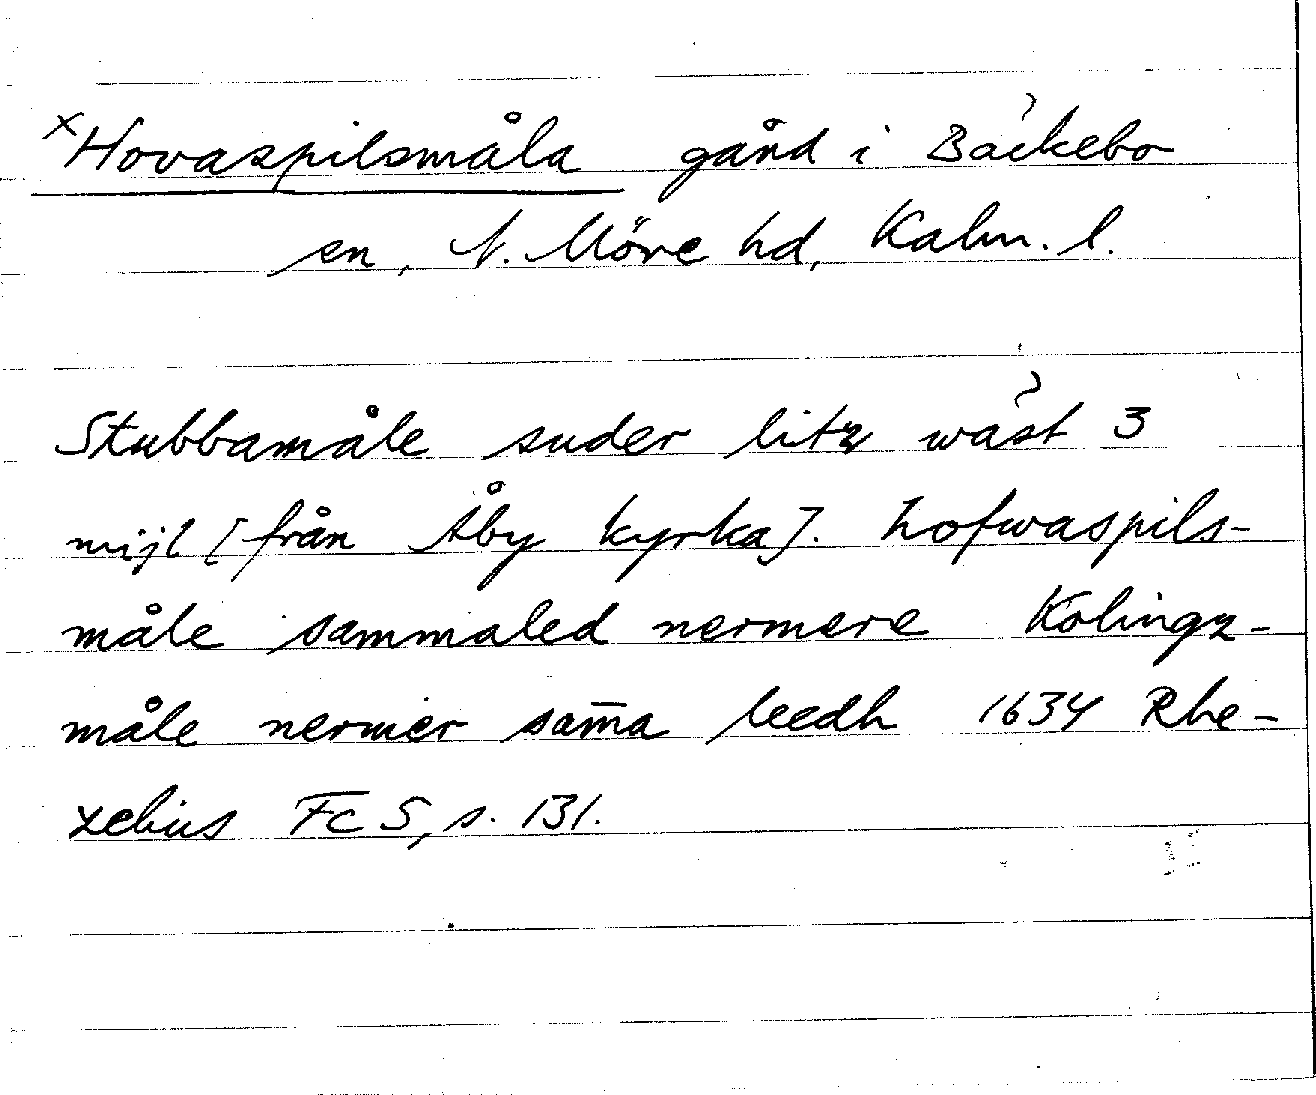 ×Hovaspilsmåla gård i Bäckebo
sn, N. Möre hd, Kalm. l.
Stubbamåle suder litz wäst 3
mijl [från Åby kyrka]. Hofwaspils-
måle sammaled nermere Kolingz-
måle nermer sam̄a leedh 1634 Rhe-
zelius Fc 5, s. 131.